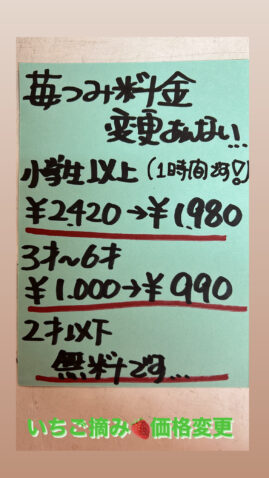 苺つみ料金
変更あんない...
小学生以上(1時間
¥2.420→¥1.980
3才~6才
¥1.000→¥990
2才以下
無料です...
いちご摘み🍓価格変更